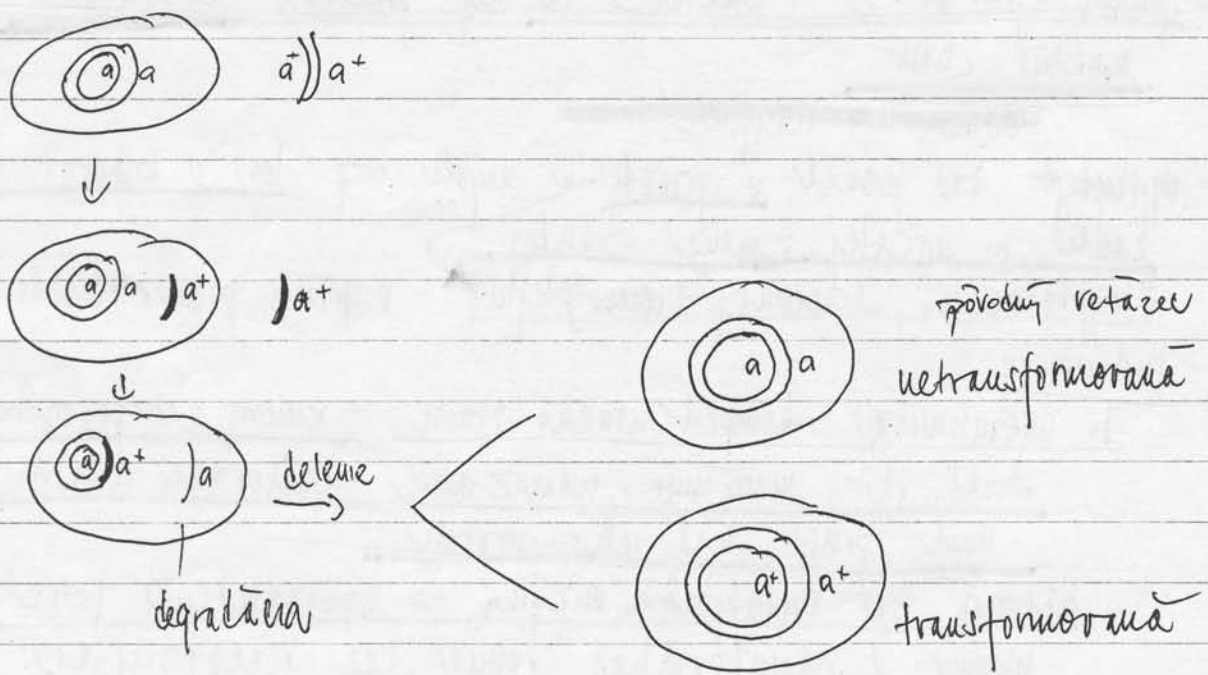 a a a⁺ a⁺
a a a⁺ a⁺
a a⁺ a delenie
degradácia
a a pôvodný reťazec
netransformovaná
a⁺ a⁺ transformovaná